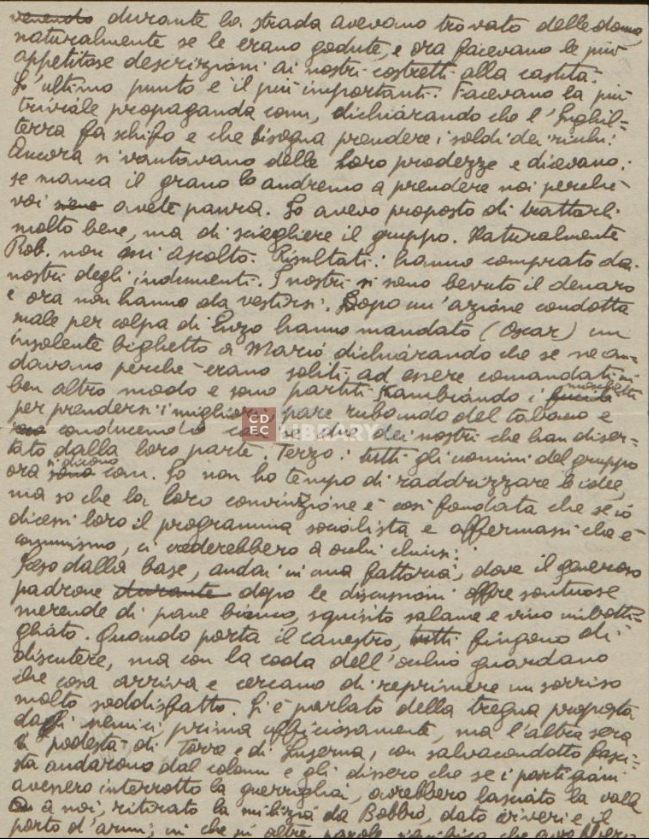 venendo durante la strada avevano trovato delle donne
naturalmente se le erano godute, e ora facevano le più
appetitose descrizioni ai nostri costretti alla castità.
L'ultimo punto è il più importante. Facevano la più
triviale propaganda com., dichiarando che l'Inghil=
terra fa schifo e che bisogna prendere i soldi dei ricchi.
Ancora si vantavano delle loro prodezze e dicevano:
se manca il grano lo andremo a prendere noi perché
voi avete paura. Io avevo proposto di trattarli
molto bene, ma di sciegliere il gruppo. Naturalmente
Rob. non mi ascoltò. Risultati: hanno comprato dai
nostri degli indumenti. I nostri si sono bevuto il denaro
e ora non hanno da vestirsi. Dopo un'azione condotta
male per colpa di Enzo hanno mandato (Oscar) un
insolente biglietto a Mario dichiarando che se ne an=
davano perché erano soliti ad essere comandati in
ben altro modo e sono partiti scambiando i
per prendersi i migliori pare rubando del tabacco e
conducendo con se due dei nostri che han diser=
tato dalla loro parte. Terzo: tutti gli uomini del gruppo
ora si dicono com. Io non ho tempo di raddrizzare le idee,
ma so che la loro convinzione è così fondata che se io
dicessi loro il programma socialista e affermassi che è
comunismo, ci crederebbero a occhi chiusi.
Sceso dalla base, andai in una fattoria, dove il generoso
padrone durante dopo le discussioni offre sontuose
merende di pane bianco, squisito salame e vino imbotti=
gliato. Quando porta il canestro, tutti fingono di
discutere, ma con la coda dell'occhio guardano
che cosa arriva e cercano di reprimere un sorriso
molto soddisfatto. Si è parlato della tregua proposta
dai nemici, prima ufficiosamente, ma l'altra sera
i podestà di Torre e di Luserna, con salvacondotto fasci=
sta andarono dal colonn. e gli dissero che se i partigiani
avessero interrotto la guerriglia, avrebbero lasciato la valle
a noi, ritirato la milizia da Bobbio, dato viveri e il
porto d'armi; in
CDEC LIBRARY